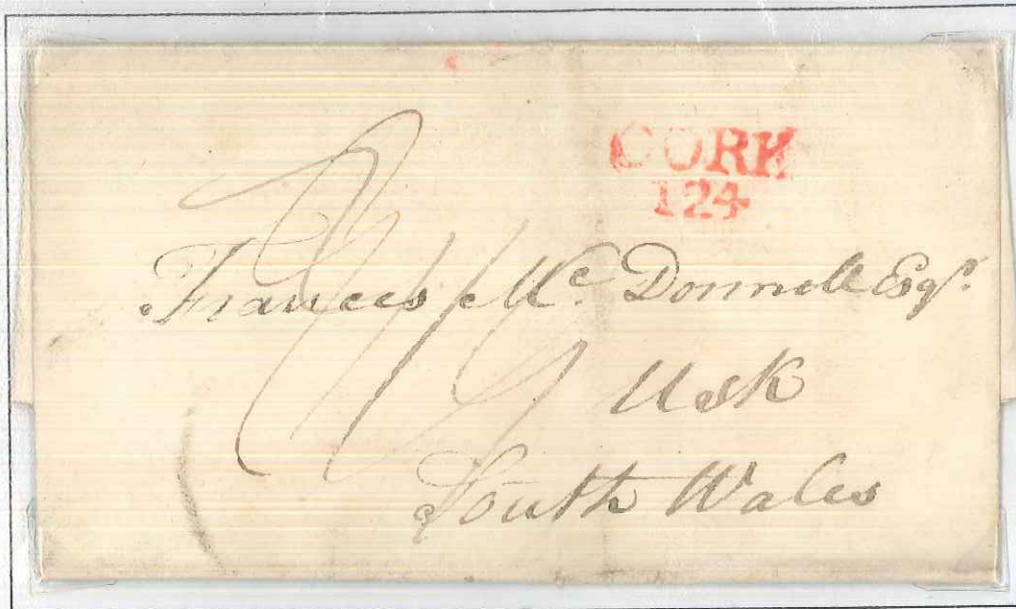 CORK
124
Frances Mc. Donnell Esqr.
Usk
South Wales